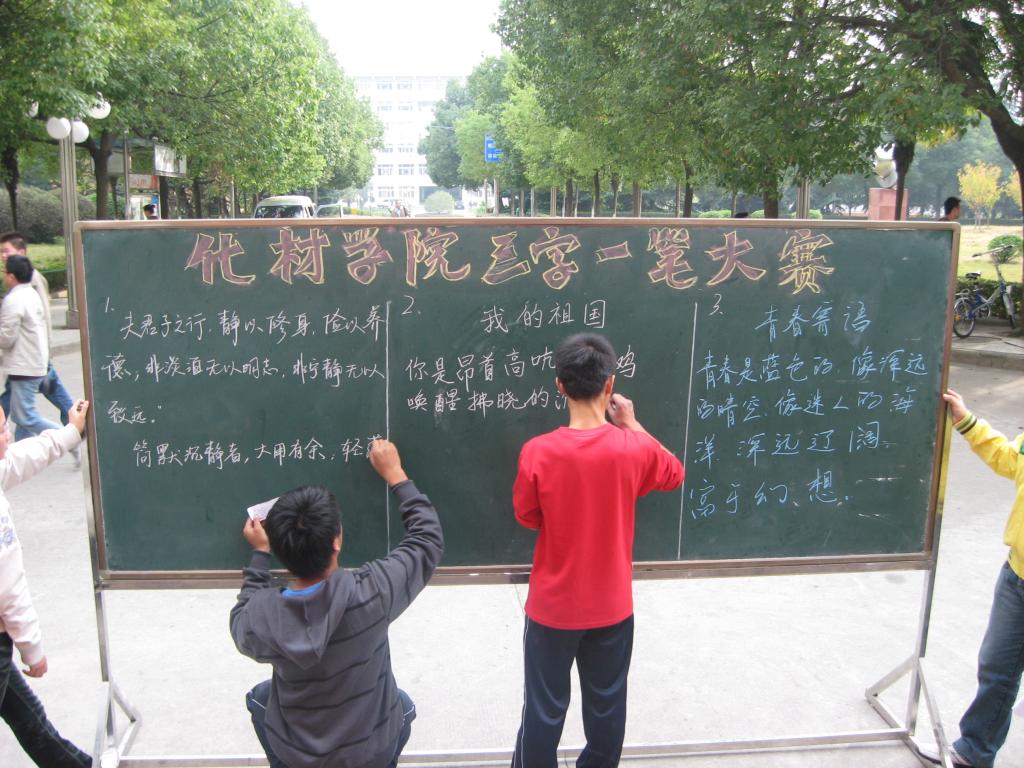 化材学院三字一笔大赛
1.
夫君子之行,静以修身,俭以养
德,非淡泊无以明志,非宁静无以
致远。
简默沉静者,大用有余;轻
2.
我的祖国
你是昂首高吭 鸡
唤醒拂晓的
3.
青春寄语
青春是蓝色的.像深远
的晴空.像迷人的海
洋.深远辽阔.
富于幻.想.